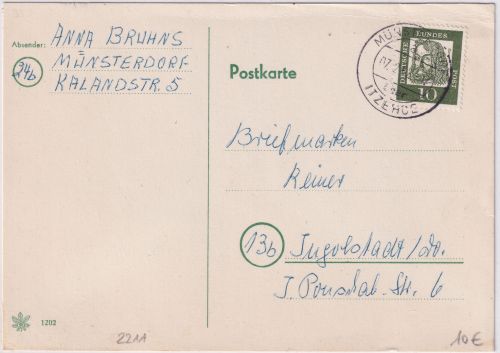 Absender: ANNA BRUHNS
24b MÜNSTERDORF
KALANDSTR. 5
Postkarte
DEUTSCHE BUNDESPOST
10
MÜN
ITZEHOE
Briefmarken
Reiner
13b Ingolstadt/Do.
J. Ponschab-Str. 6
1202
221A
10€